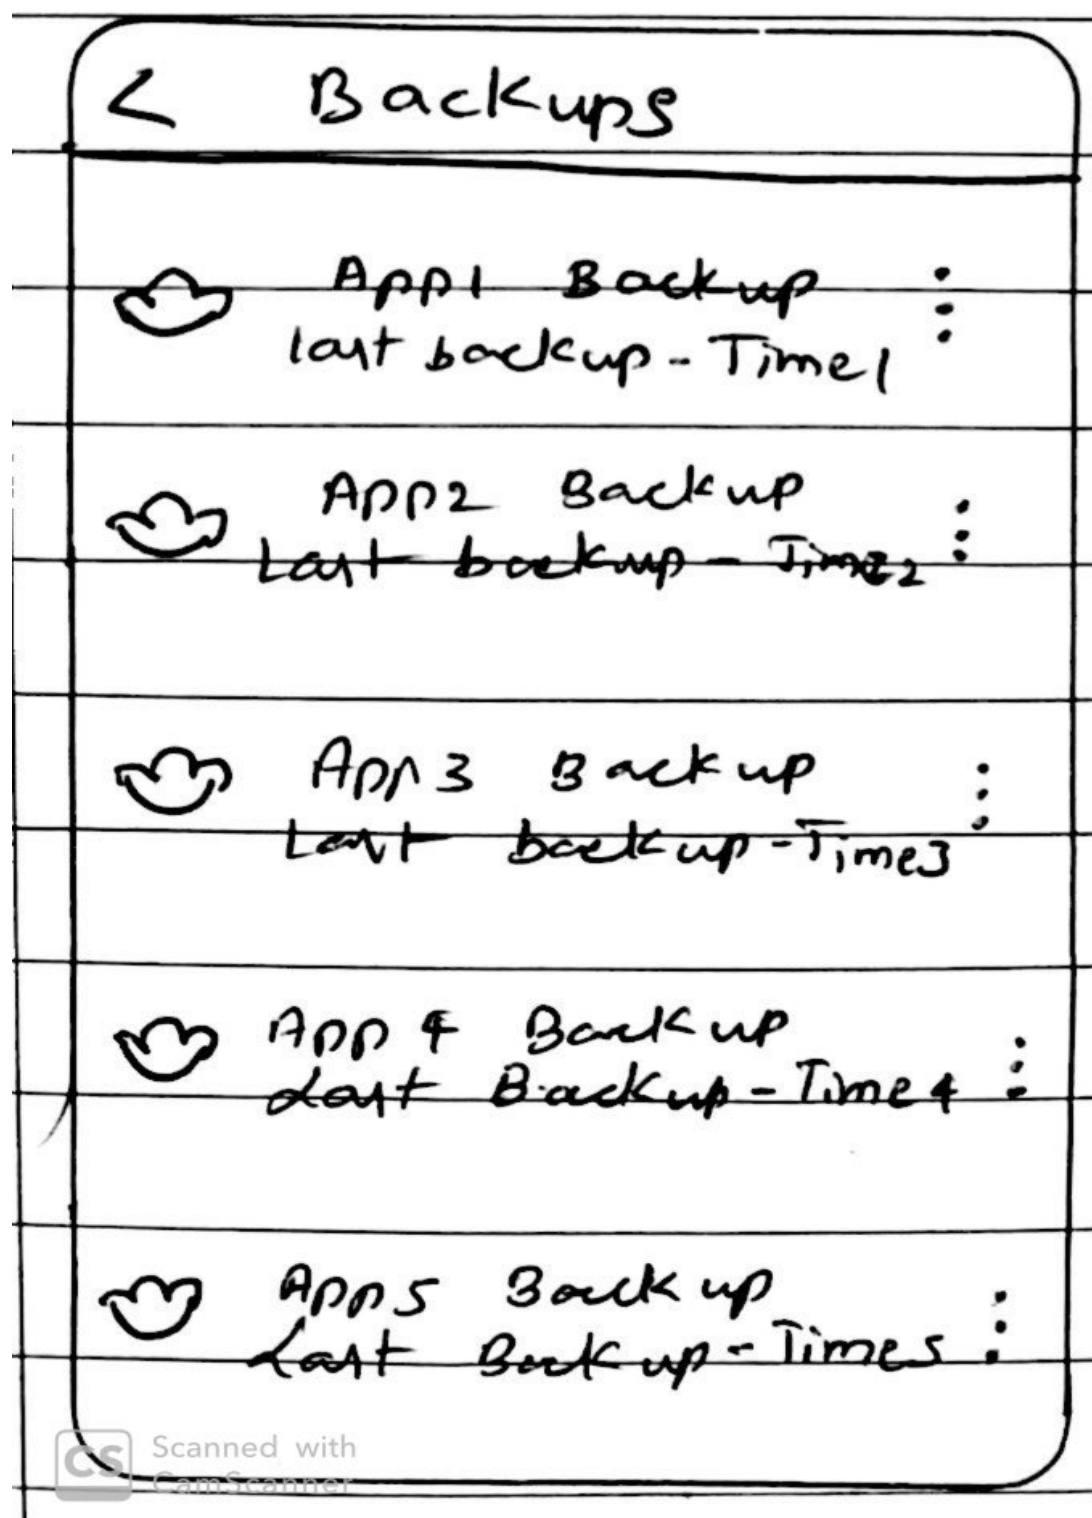 < Backups
App1 Backup
last backup - Time1
App2 Backup
Last backup - Time2
App3 Backup
Last backup - Time3
App 4 Backup
Last Backup - Time4
App5 Backup
Last Backup - Time5
CS Scanned with
CamScanner